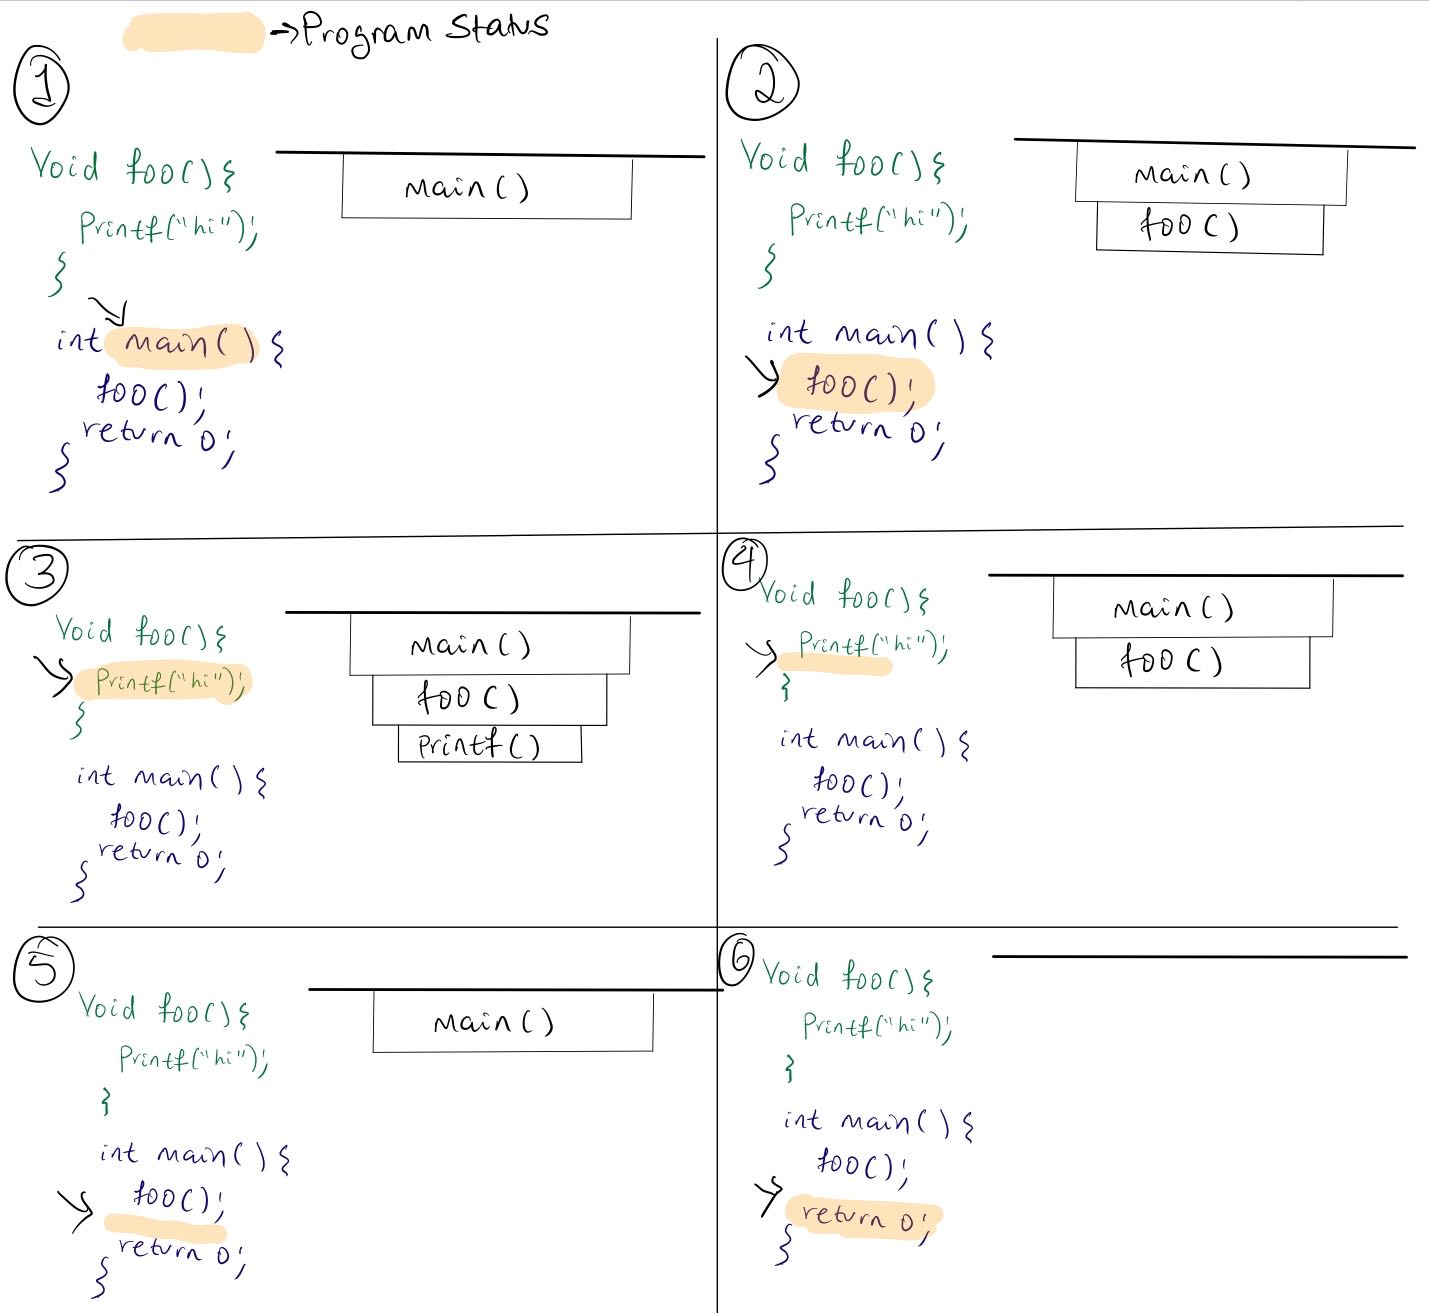 →Program Status
1
Void foo(){
Printf("hi");
}
int main() {
foo();
return 0;
}
main()
2
Void foo(){
Printf("hi");
}
int main() {
foo();
return 0;
}
main()
foo()
3
Void foo(){
Printf("hi");
}
int main() {
foo();
return 0;
}
main()
foo()
printf()
4
Void foo(){
Printf("hi");
}
int main() {
foo();
return 0;
}
main()
foo()
5
Void foo(){
Printf("hi");
}
int main() {
foo();
return 0;
}
main()
6
Void foo(){
Printf("hi");
}
int main() {
foo();
return 0;
}